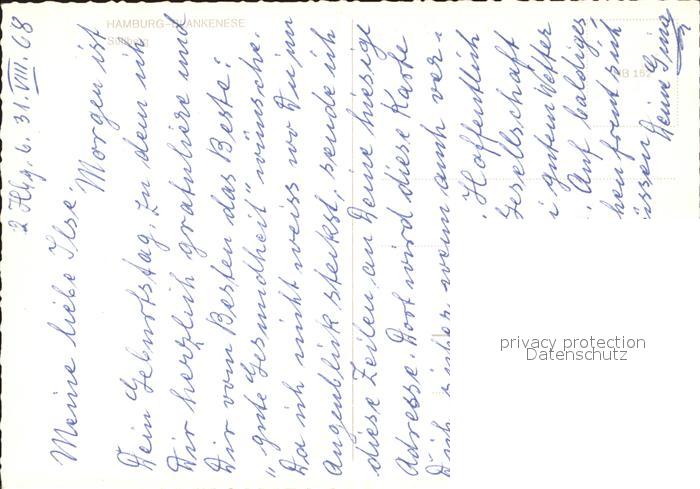 HAMBURG-BLANKENESE
Süllberg
2 Hbg. 6. 31. VIII. 68
Meine liebe Ilse.
Morgen ist
Dein Geburtstag, zu dem ich
Dir herzlich gratuliere und
Dir vom Besten das Beste:
"gute Gesundheit" wünsche.
Da ich nicht weiss wo Du im
Augenblick steckst, sende ich
diese Zeilen an Deine hiesige
Adresse. Dort wird diese Karte
Dich wenn auch ver-
Hoffentlich
Gesellschaft
gutem Wetter
Auf baldiges
hen freut sich
Deine Gina
privacy protection
Datenschutz